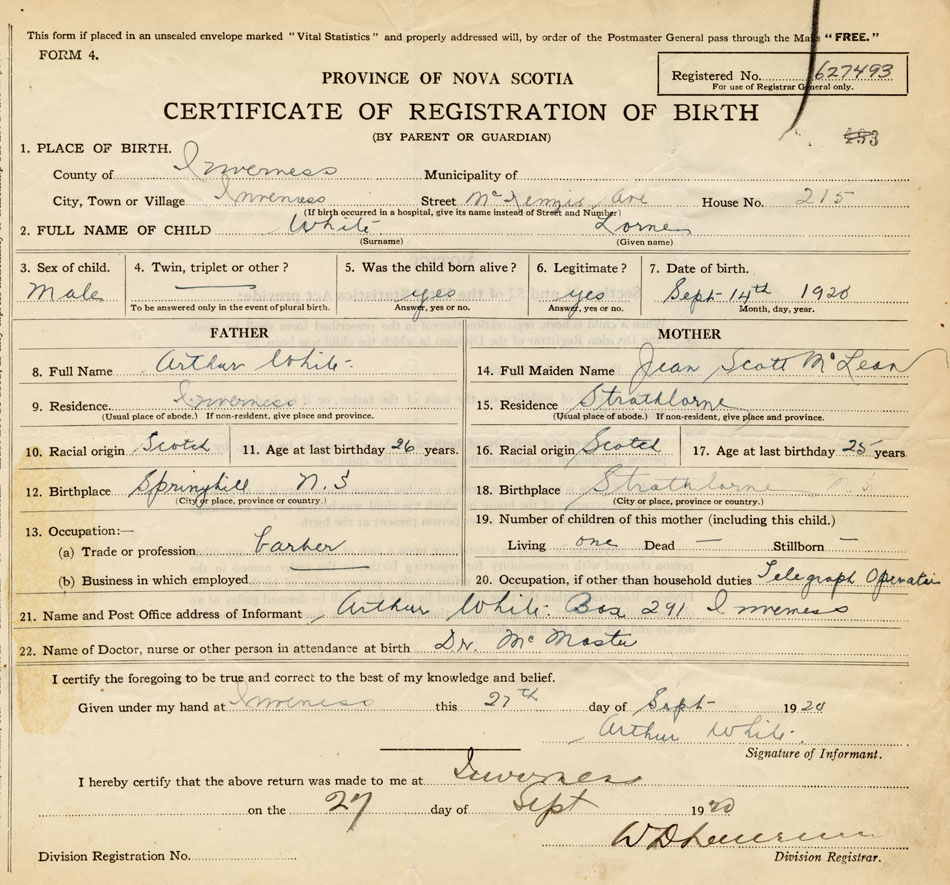 This form if placed in an unsealed envelope marked "Vital Statistics" and properly addressed will, by order of the Postmaster General pass through the Mails "FREE."
FORM 4.
Registered No. 627493
For use of Registrar General only.
PROVINCE OF NOVA SCOTIA
CERTIFICATE OF REGISTRATION OF BIRTH
(BY PARENT OR GUARDIAN)
1. PLACE OF BIRTH.
County of Inverness Municipality of
City, Town or Village Inverness Street Ave House No. 215
(If birth occurred in a hospital, give its name instead of Street and Number)
2. FULL NAME OF CHILD White Lorne
(Surname) (Given name)
3. Sex of child. 4. Twin, triplet or other? 5. Was the child born alive? 6. Legitimate? 7. Date of birth.
Male — yes yes Sept 14th 1920
To be answered only in the event of plural birth. Answer, yes or no. Answer, yes or no. Month, day, year.
FATHER MOTHER
8. Full Name Arthur White 14. Full Maiden Name Jean Scott McLean
9. Residence Inverness 15. Residence Strathlorne
(Usual place of abode.) If non-resident, give place and province. (Usual place of abode.) If non-resident, give place and province.
10. Racial origin Scotch 11. Age at last birthday 26 years. 16. Racial origin Scotch 17. Age at last birthday 25 years
12. Birthplace Springhill N.S 18. Birthplace Strathlorne
(City or place, province or country.) (City or place, province or country.)
13. Occupation:— 19. Number of children of this mother (including this child.)
(a) Trade or profession barber Living one Dead — Stillborn —
(b) Business in which employed 20. Occupation, if other than household duties Telegraph Operator
21. Name and Post Office address of Informant Arthur White Box 291 Inverness
22. Name of Doctor, nurse or other person in attendance at birth Dr. McMaster
I certify the foregoing to be true and correct to the best of my knowledge and belief.
Given under my hand at Inverness this 27th day of Sept 1920
Arthur White
Signature of Informant.
I hereby certify that the above return was made to me at Inverness
on the 27 day of Sept 1920
Division Registration No. Division Registrar.